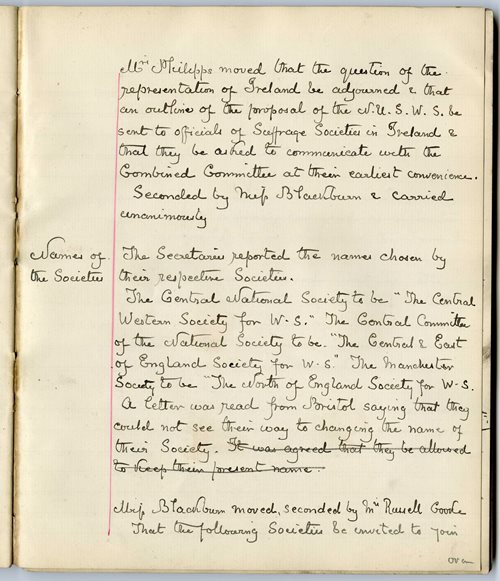 Mrs Philipps moved that the question of the
representation of Ireland be adjourned & that
an outline of the proposal of the N.U.S.W.S. be
sent to officials of Suffrage Societies in Ireland &
that they be asked to communicate with the
Combined Committee at their earliest convenience.
Seconded by Miss Blackburn & carried
unanimously
Names of
the Societies
The Secretaries reported the names chosen by
their respective Societies.
The Central National Society to be "The Central
Western Society for W.S." The Central Committee
of the National Society to be. "The Central & East
of England Society for W.S." The Manchester
Society to be "The North of England Society for W.S.
A letter was read from Bristol saying that they
could not see their way to changing the name of
their Society. It was agreed that they be allowed
to keep their present name.
Miss Blackburn moved, seconded by Mrs Russell Cooke
That the following Societies be invited to join
over